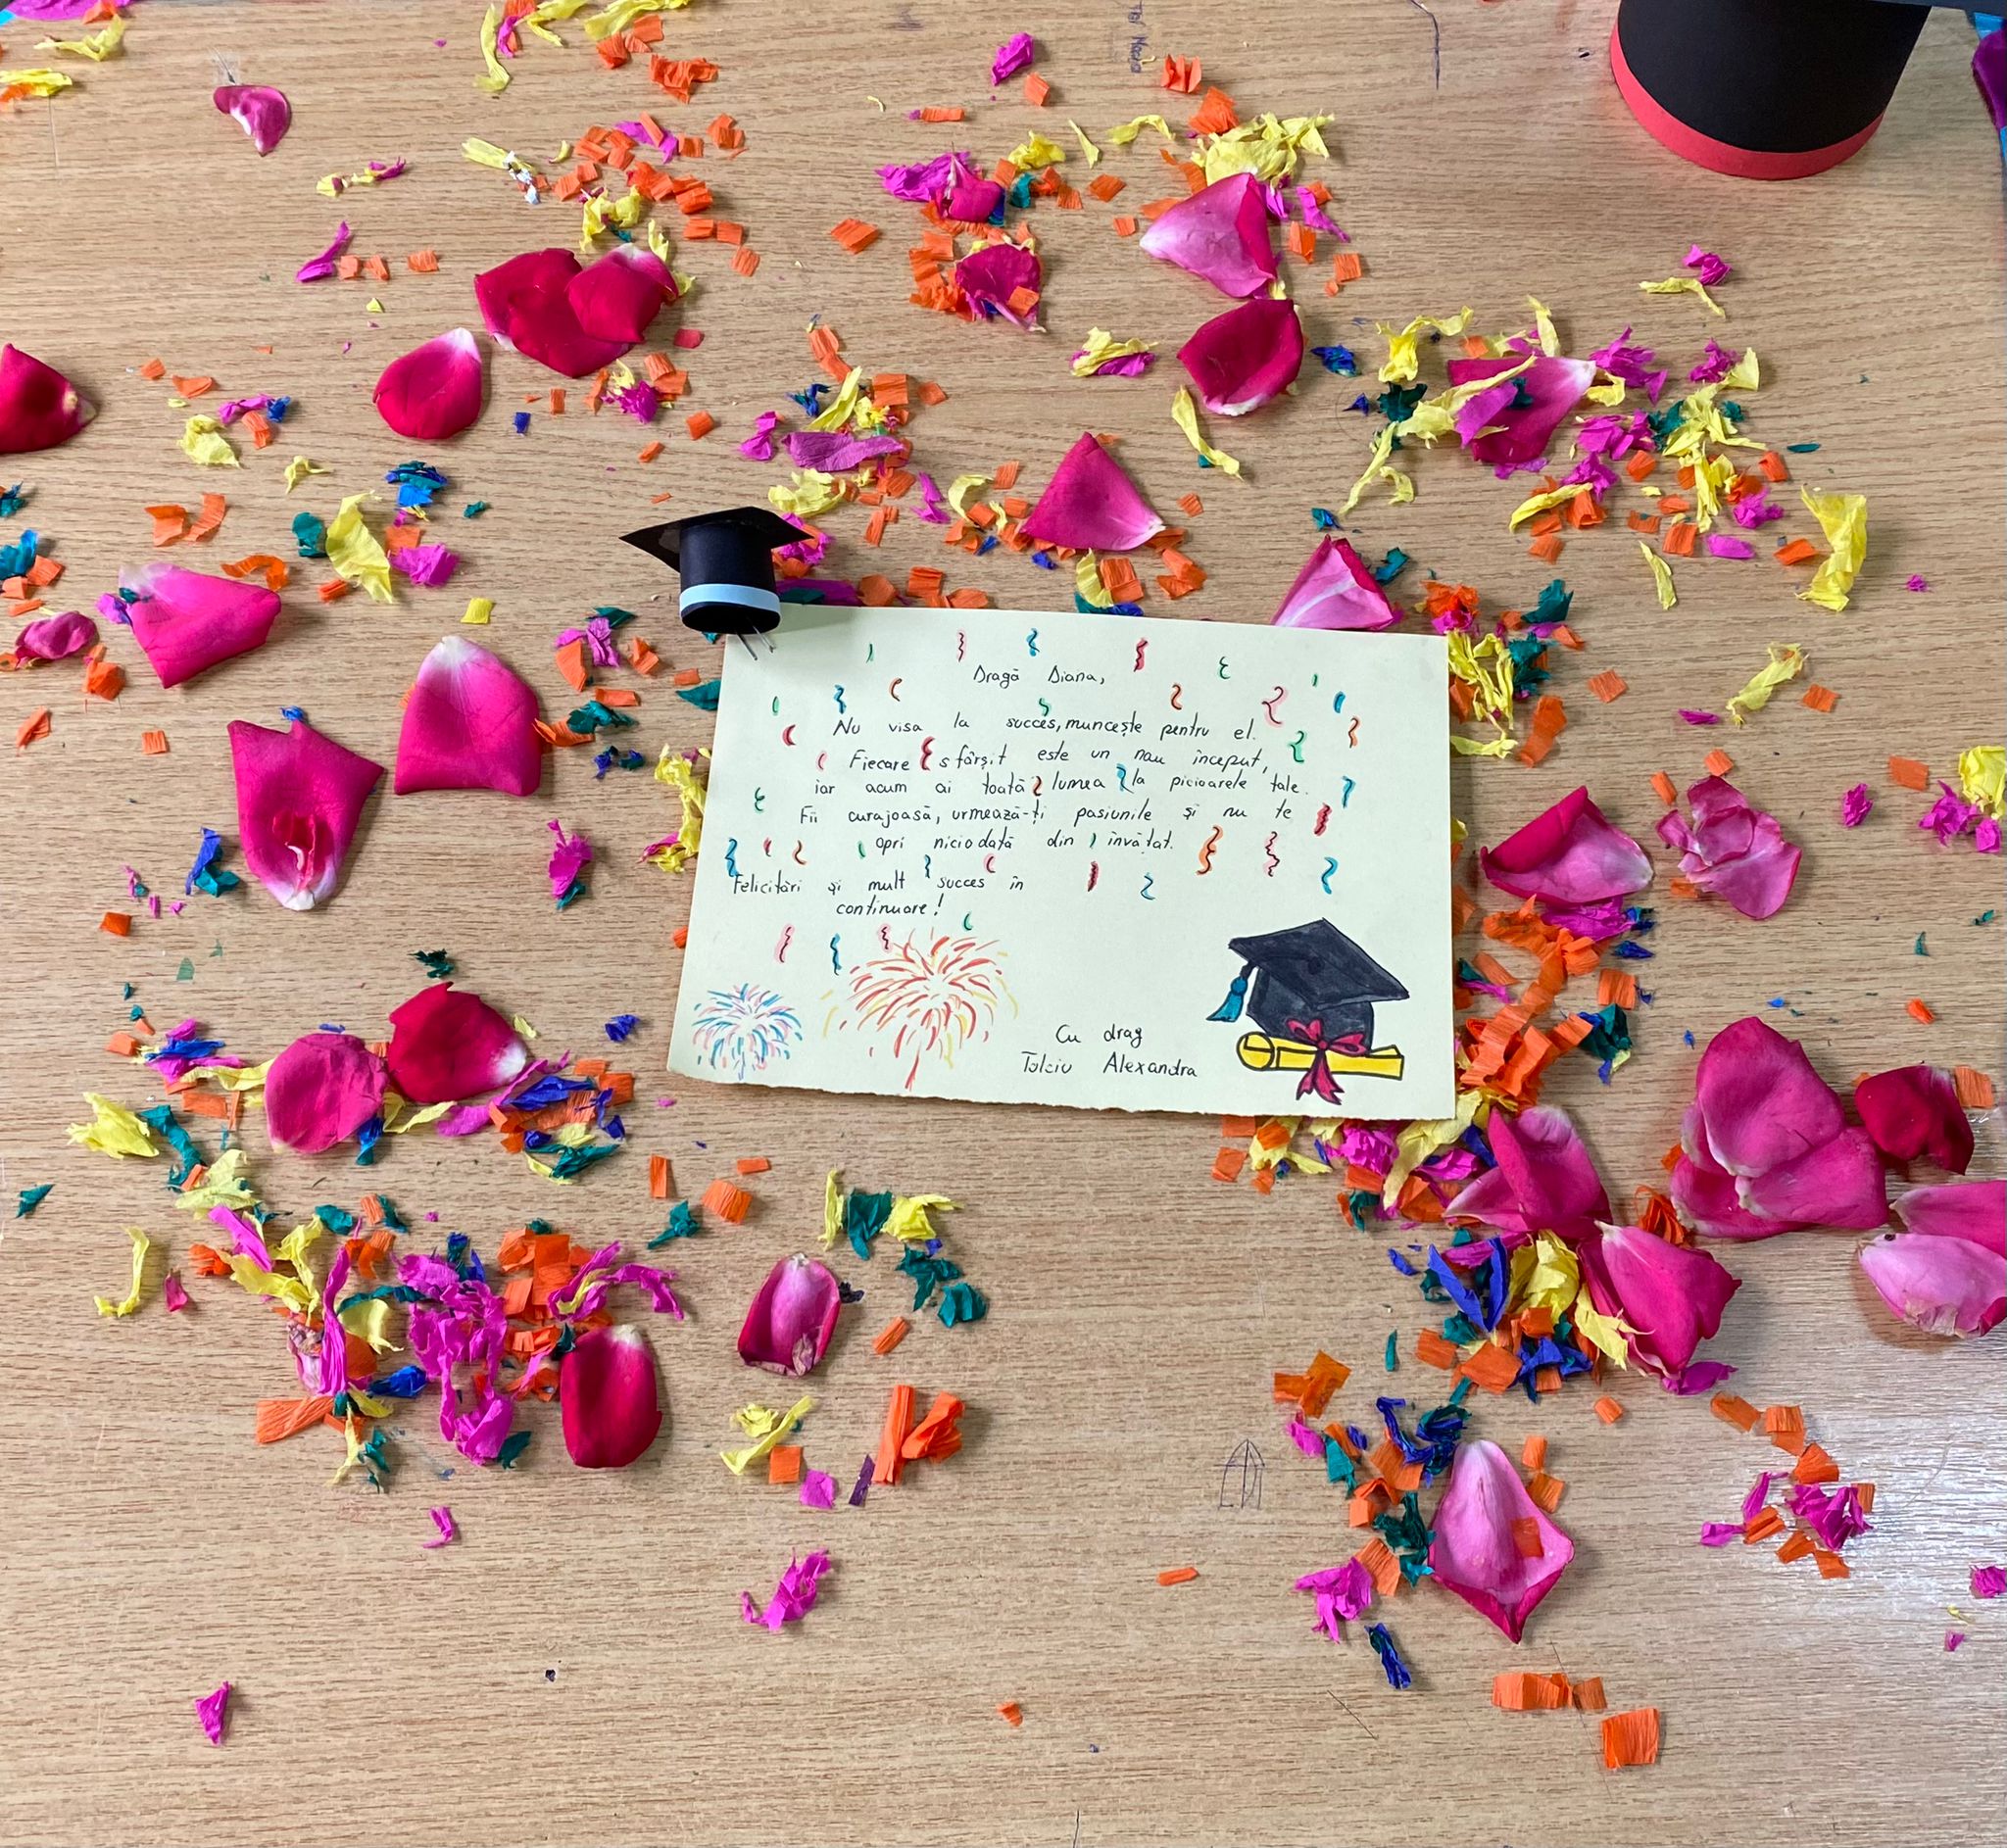 Dragă Diana,
Nu visa la succes, muncește pentru el.
Fiecare sfârșit este un nau început,
iar acum ai toată lumea la picioarele tale.
Fii curajoasă, urmează-ți pasiunile și nu te
opri niciodată din învățat.
Felicitări și mult succes în
continuare!
Cu drag
Alexandra